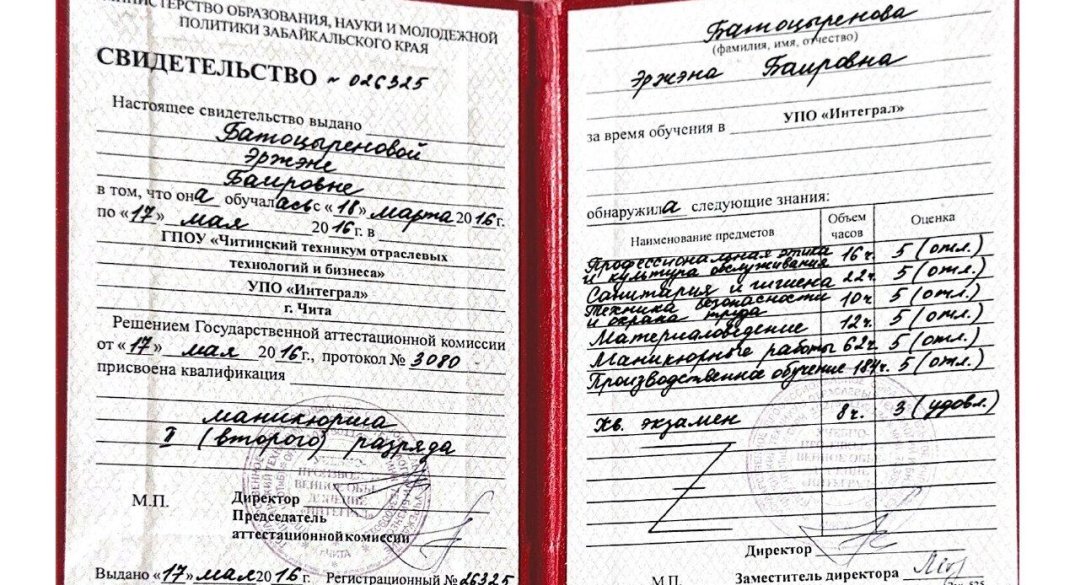 МИНИСТЕРСТВО ОБРАЗОВАНИЯ, НАУКИ И МОЛОДЕЖНОЙ
ПОЛИТИКИ ЗАБАЙКАЛЬСКОГО КРАЯ
СВИДЕТЕЛЬСТВО № 026325
Настоящее свидетельство выдано
Батоцыреновой
Эржэне
Баировне
в том, что она обучалась с «18» марта 2016г.
по «17» мая 2016г. в
ГПОУ «Читинский техникум отраслевых
технологий и бизнеса»
УПО «Интеграл»
г. Чита
Решением Государственной аттестационной комиссии
от «17» мая 2016г., протокол № 3080
присвоена квалификация
маникюрша
II (второго) разряда
М.П. Директор
Председатель
аттестационной комиссии
Выдано «17» мая 2016г. Регистрационный № 26325
Батоцыренова
(фамилия, имя, отчество)
Эржэна Баировна
за время обучения в УПО «Интеграл»
обнаружила следующие знания:
Наименование предметов Объем часов Оценка
Профессиональная этика и культура обслуживания 16ч. 5 (отл.)
Санитария и гигиена 22ч. 5 (отл.)
Техника безопасности и охрана труда 10ч. 5 (отл.)
Материаловедение 12ч. 5 (отл.)
Маникюрные работы 62ч. 5 (отл.)
Производственное обучение 184ч. 5 (отл.)
Кв. экзамен 8ч. 3 (удовл.)
Директор
М.П. Заместитель директора